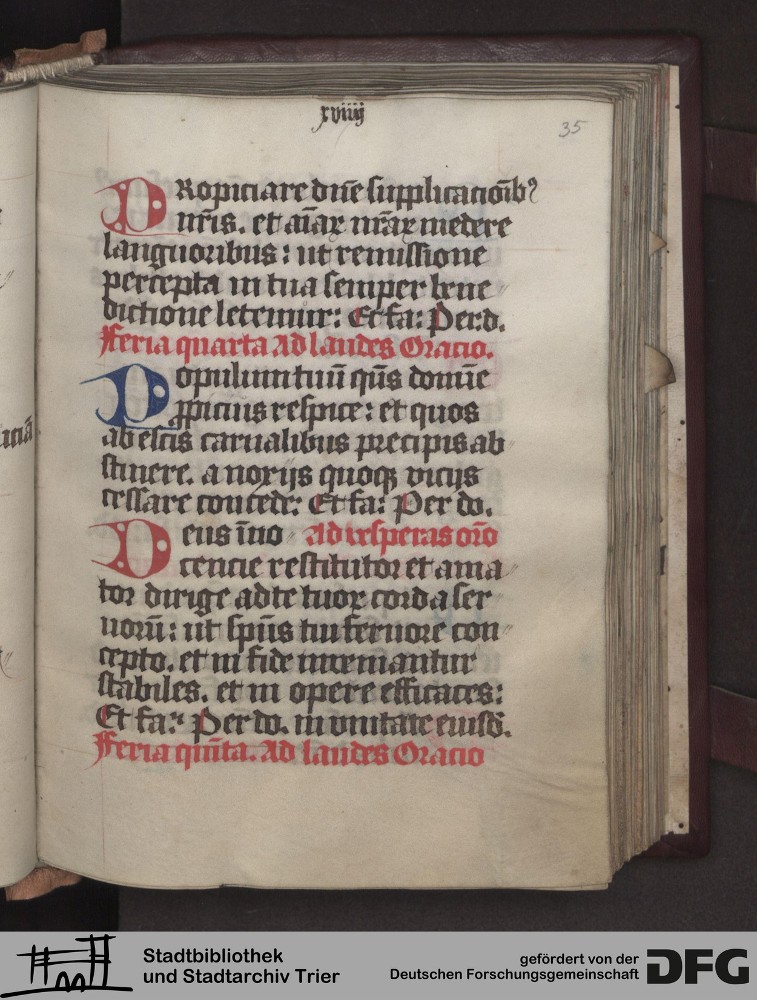 xviiij
35
PRopiciare dn̄e supplicacōib9
nr̄is. et aīaꝝ nr̄aꝝ medere
languoribus: ut remissione
percepta in tua semper bene
dictione letemur: Et fa: Per d.
Feria quarta Ad laudes Oracio.
Populum tuū qūs domīe
ꝓpicius respice: et quos
ab escis carnalibus precipis ab
stinere. a noxijs quoqꝫ vicijs
cessare concede: Et fa: Per do.
Deus īno Ad vesperas orō
cencie restitutor et ama
tor dirige ad te tuoꝝ corda ser
uorū: ut spūs tui feruore con
cepto. et in fide inueniantur
stabiles. et in opere efficaces:
Et fa: Per do. in vnitate eiusd.
Feria quīta. Ad laudes Oracio
Stadtbibliothek
und Stadtarchiv Trier
gefördert von der
Deutschen Forschungsgemeinschaft
DFG